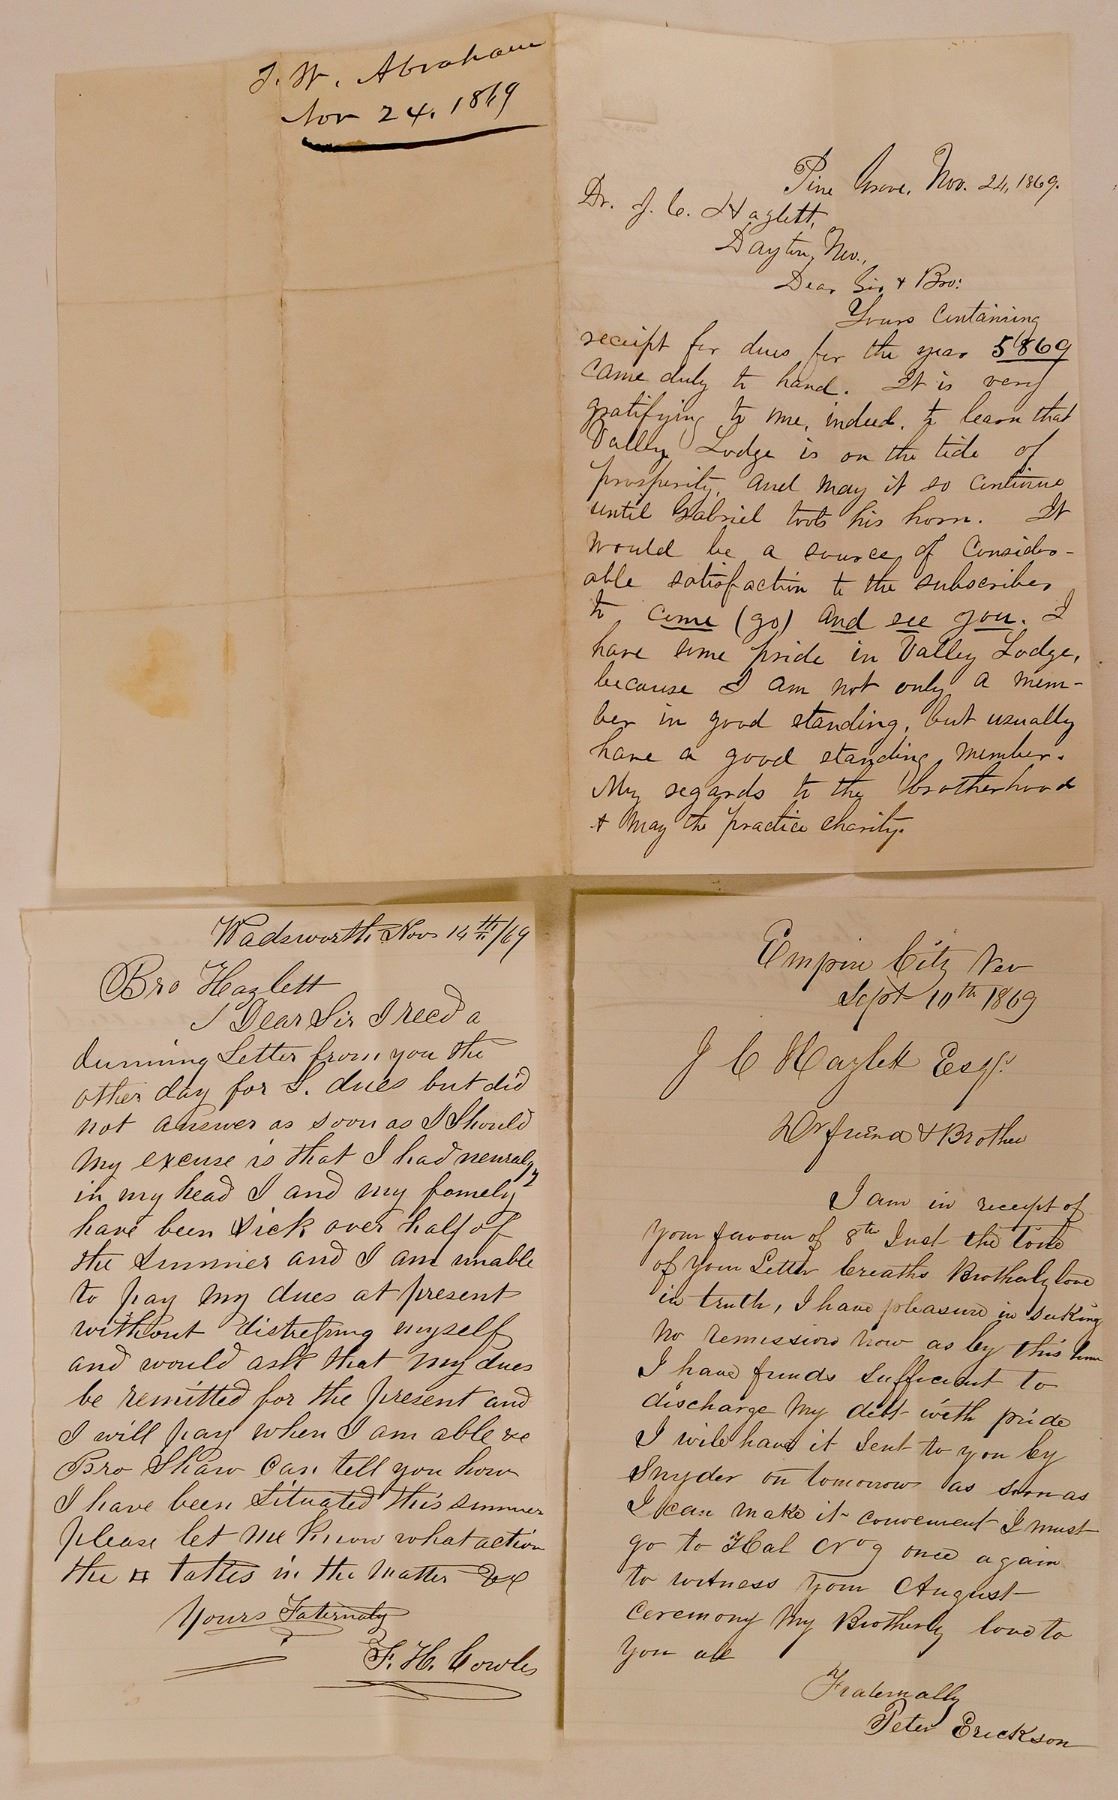 J. W. Abraham
Nov 24, 1869
Pine Grove, Nov. 24, 1869.
Dr. J. C. Hazlett,
Dayton, Nev.,
Dear Sir & Bro:
Yours containing
receipt for dues for the year 5869
came duly to hand. It is very
gratifying to me, indeed, to learn that
Valley Lodge is on the tide of
prosperity, and may it so continue
until Gabriel toots his horn. It
would be a source of consider-
able satisfaction to the subscriber
to come (go) and see you. I
have some pride in Valley Lodge,
because I am not only a mem-
ber in good standing, but usually
have a good standing member.
My regards to the brotherhood
& may the practice charity.
Wadsworth Nov 14th/69
Bro Hazlett
Dear Sir I recd a
dunning Letter from you the
other day for L. dues but did
not answer as soon as I Should
my excuse is that I had neuralgy
in my head I and my famely
have been Sick over half of
the Summer and I am unable
to pay my dues at present
without distressing myself
and would ask that my dues
be remitted for the present and
I will pay when I am able &c
Bro Shaw Can tell you how
I have been Situated this summer
please let me Know what action
the # takes in the matter &c
Yours Faternaly
F. H. Cowles
Empire City Nev
Sept 10th 1869
J C Hazlett Esqr.
Dr friend & Brother
I am in receipt of
your favour of 8th Inst the tone
of your Letter breaths Brotherly love
in truth, I have pleasure in seeking
no remission now as by this time
I have funds sufficient to
discharge my debt with pride
I wile have it Sent to you by
Snyder on tomorrow as soon as
I can make it convenient I must
go to Hal once again
to witness your August
Ceremony My Brotherly love to
you all
Fraternally
Peter Erickson